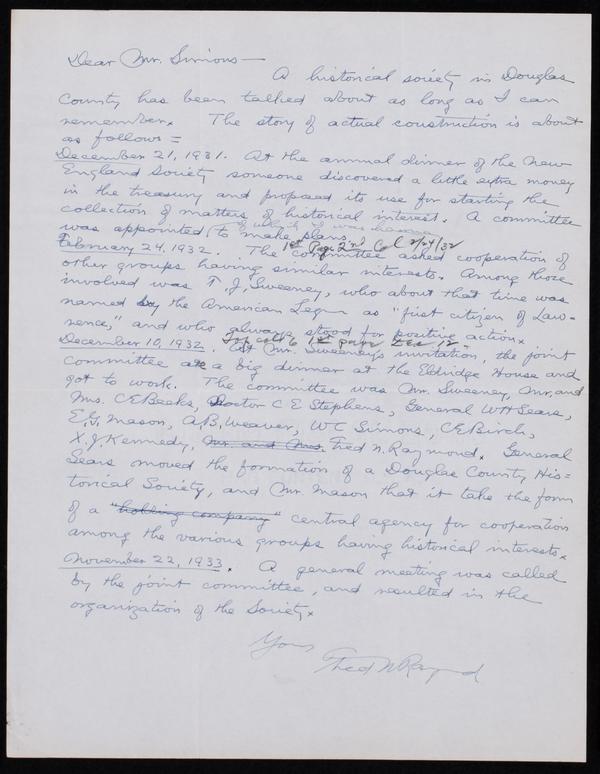 Dear Mr. Simons —
A historical society in Douglas
County has been talked about as long as I can
remember. The story of actual construction is about
as follows =
December 21, 1931. At the annual dinner of the New
England Society someone discovered a little extra money
in the treasury and proposed its use for starting the
collection of matters of historical interest. A committee
of which I was
was appointed to make plans.
1st Page 2nd Col 2/24/32
February 24, 1932. The committee asked cooperation of
other groups having similar interests. Among those
involved was T. J. Sweeney, who about that time was
named by the American Legion as "first citizen of Law-
rence," and who always stood for positive action.
Top col 6 1st page Dec 12-
December 10, 1932. At Mr. Sweeney's invitation, the joint
committee ate a big dinner at the Eldridge House and
got to work. The committee was Mr. Sweeney, Mr. and
Mrs. C E Beeks, Doctor C E Stephens, General W H Sears,
E. G. Mason, A. B. Weaver, W C Simons, C E Birch,
X. J. Kennedy, Mr. and Mrs. Fred N. Raymond. General
Sears moved the formation of a Douglas County His=
torical Society, and Mr. Mason that it take the form
of a "holding company" central agency for cooperation
among the various groups having historical interests.
November 22, 1933. A general meeting was called
by the joint committee, and resulted in the
organization of the Society.
Yours
Fred N Raymond